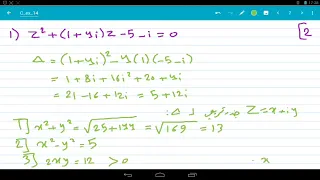 C_an_14
1) Z² + (1 + 4i)Z - 5 - i = 0 [2
Δ = (1 + 4i)² - 4(1)(-5 - i)
= 1 + 8i + 16i² + 20 + 4i
= 21 - 16 + 12i = 5 + 12i
Z = x + iy : Δ
1] x² + y² = √25 + 144 = √169 = 13
2] x² - y² = 5
3] 2xy = 12 > 0 x